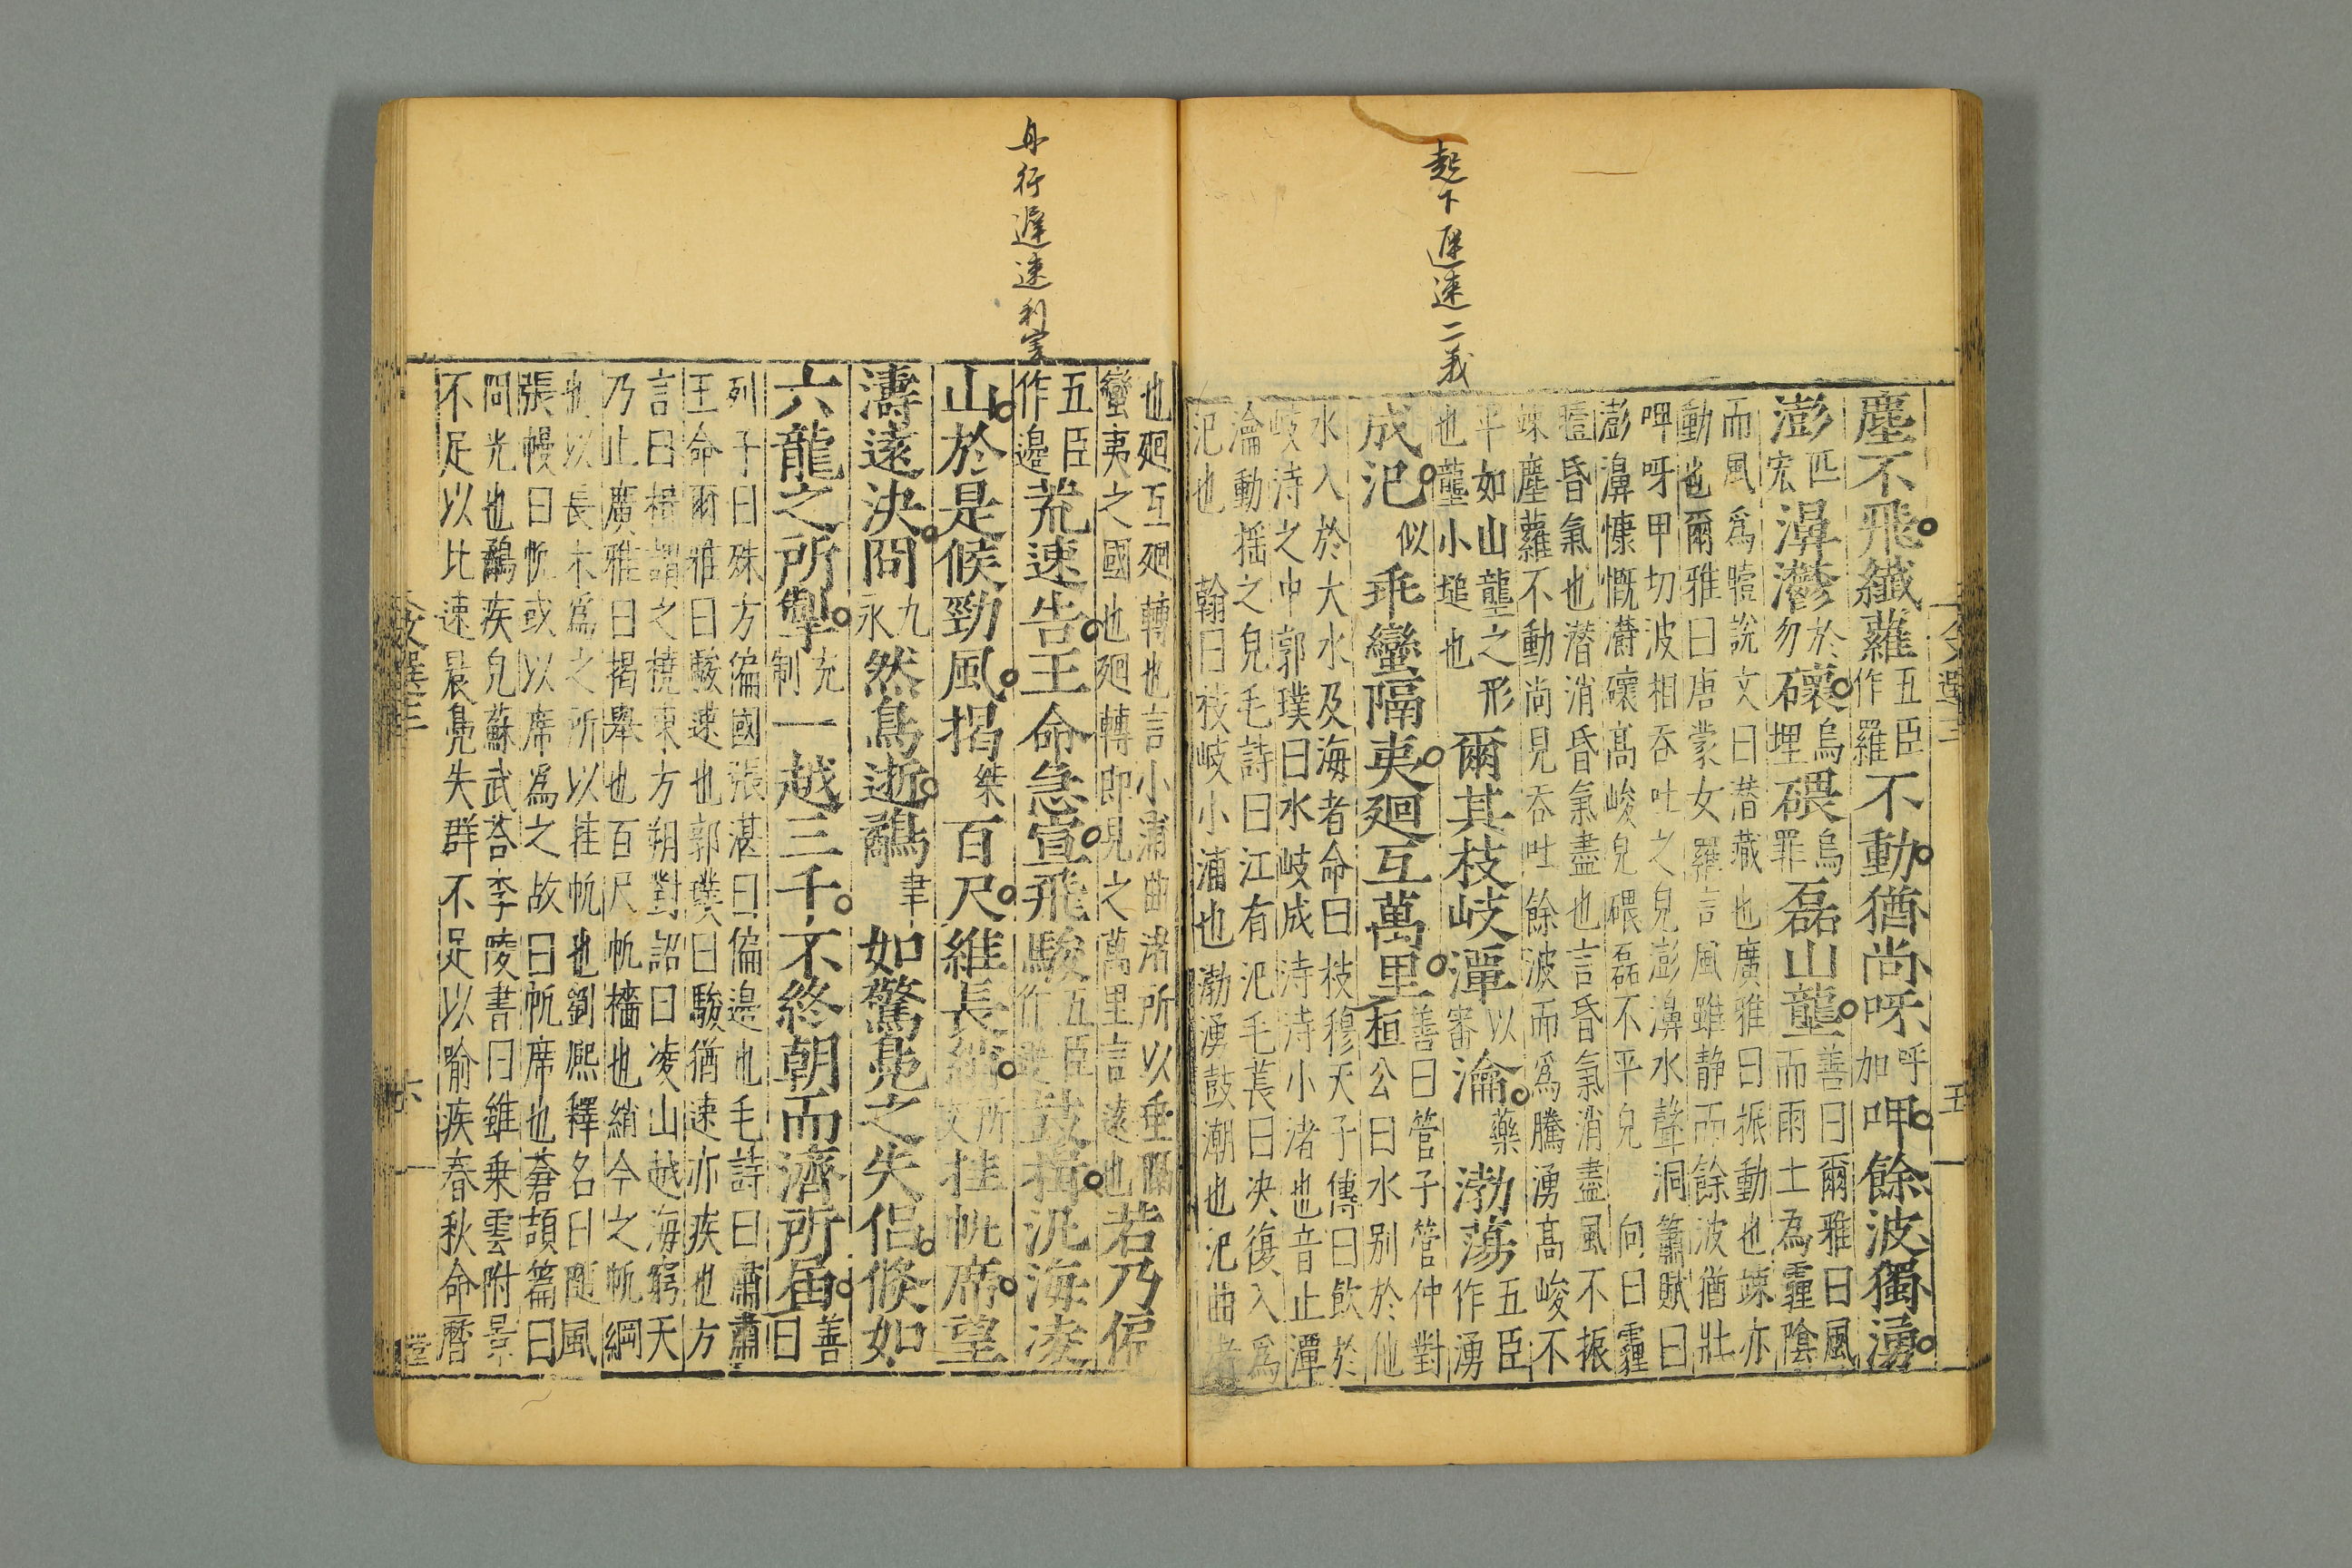 起下遲速二義
塵不飛纖蘿五臣作羅不動猶尚呀呼加呷餘波獨湧
澎匹宏濞灪於勿烏埋碨烏罪磊山壟善曰爾雅曰風
而雨土為霾陰
而風為曀說文曰潛藏也廣雅曰振動也竦亦
動也爾雅曰唐蒙女羅言風雖静而餘波猶壯
呷呀甲切波相吞吐之皃澎濞水聲洞簫賦曰
澎濞慷慨灪高峻皃碨磊不平皃 向曰霾
曀昏氣也潛消昏氣盡也言昏氣消盡風不振
竦塵蘿不動尚見吞吐餘波而為騰湧高峻不
平如山壟之形
也壟小塠也
爾其枝岐潭以審瀹藥渤蕩五臣作湧
成汜似乖蠻隔夷廻互萬里善曰管子管仲對
桓公曰水別於他
水入於大水及海者命曰枝穆天子傳曰飲於
岐洔之中郭璞曰水岐成洔洔小渚也音止潭
瀹動揺之皃毛詩曰江有汜毛萇曰决復入為
汜也 翰曰枝岐小浦也渤湧鼓潮也汜曲渚
文選三 五
舟行遲速利害
也廻互廻轉也言小浦曲渚所以乖隔
蠻夷之國也廻轉即見之萬里言遠也
若乃偏
五臣作邊荒速告王命急宣飛駿五臣作迅鼓楫汎海凌
山於是候勁風揭桀百尺維長綃所交挂帆席望
濤遠決冏九永然鳥逝鷸聿如驚鳧之失侶倏如
六龍之所掣充制一越三千不終朝而濟所届善曰
列子曰殊方偏國張湛曰偏邉也毛詩曰肅肅
王命爾雅曰駿速也郭璞曰駿猶速亦疾也方
言曰楫謂之橈東方朔對詔曰凌山越海窮天
乃止廣雅曰揭舉也百尺帆檣也綃今之帆綱
也以長木為之所以挂帆也劉熈釋名曰隨風
張幔曰帆或以席為之故曰帆席也蒼頡篇曰
冏光也鷸疾皃蘇武荅李陵書曰雖乗雲附景
不足以比速晨鳧失群不足以喻疾春秋命曆
文選三 六